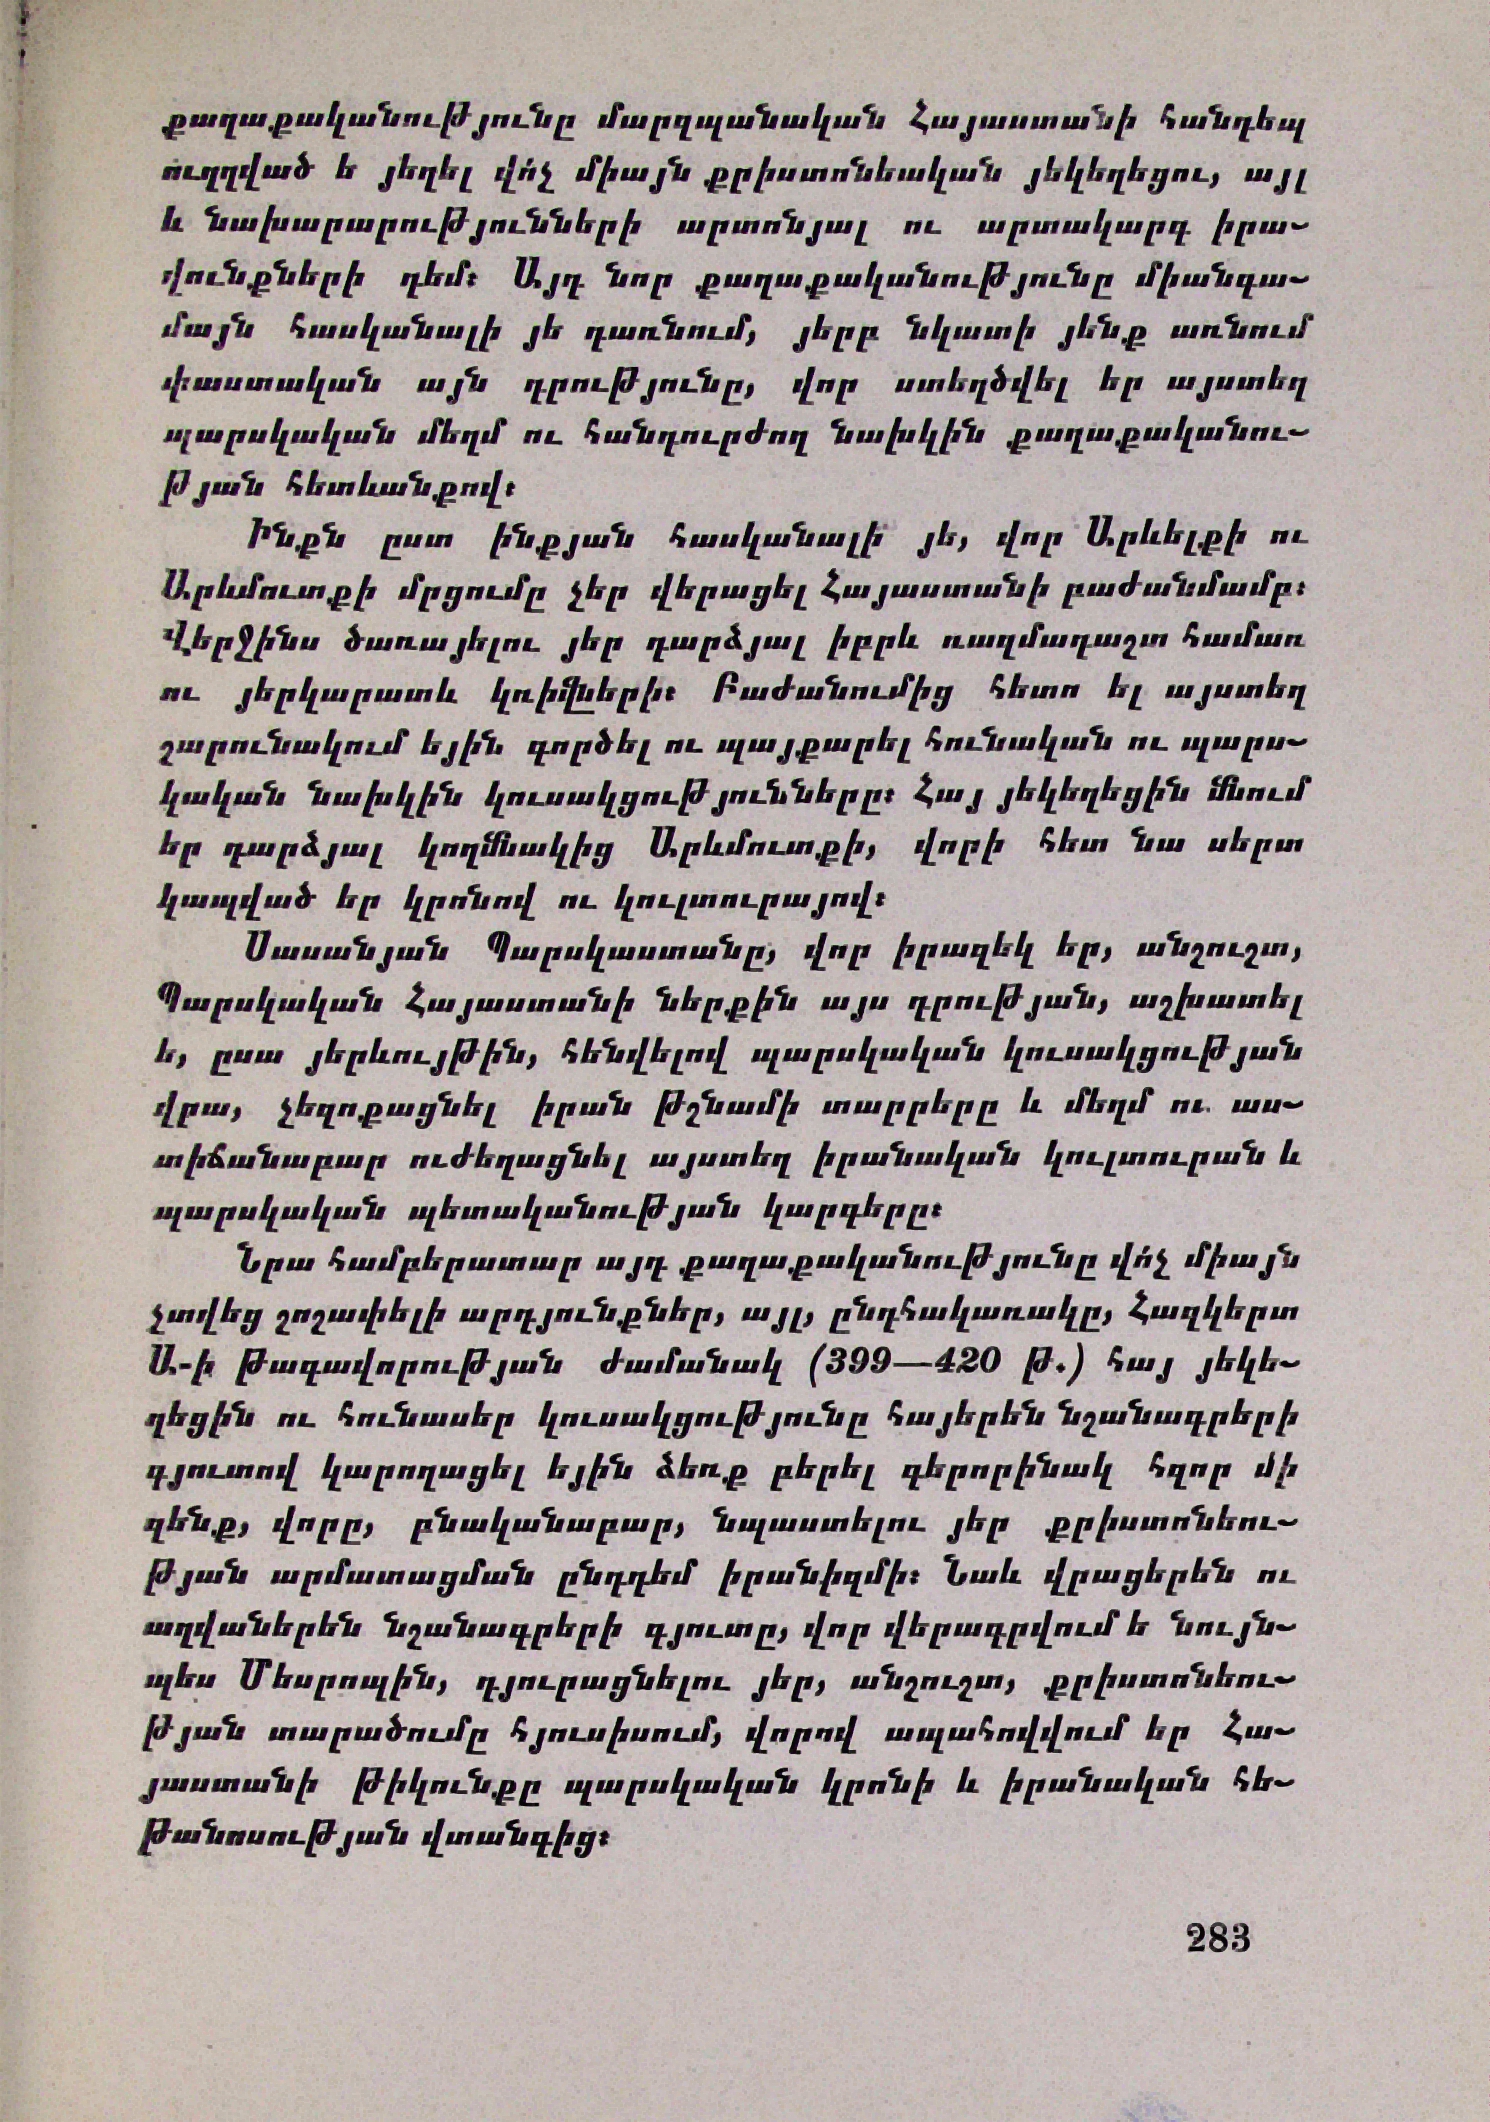 քաղաքականությունը մարզպանական Հայաստանի հանդեպ
ուղղված ե յեղել վո՛չ միայն քրիստոնեական յեկեղեցու, այլ
և նախարարությունների արտոնյալ ու արտակարգ իրա-
վունքների դեմ։ Այդ նոր քաղաքականությունը միանգա-
մայն հասկանալի յե դառնում, յերբ նկատի յենք առնում
փաստական այն դրությունը, վոր ստեղծվել եր այստեղ
պարսկական մեղմ ու հանդուրժող նախկին քաղաքականու-
թյան հետևանքով։
Ինքն ըստ ինքյան հասկանալի յե, վոր Արևելքի ու
Արևմուտքի մրցումը չեր վերացել Հայաստանի բաժանմամբ։
Վերջինս ծառայելու յեր դարձյալ իբրև ռազմադաշտ համառ
ու յերկարատև կռիվների։ Բաժանումից հետո ել այստեղ
շարունակում եյին գործել ու պայքարել հունական ու պարս-
կական նախկին կուսակցությունները։ Հայ յեկեղեցին մնում
եր դարձյալ կողմնակից Արևմուտքի, վորի հետ նա սերտ
կապված եր կրոնով ու կուլտուրայով։
Սասանյան Պարսկաստանը, վոր իրազեկ եր, անշուշտ,
Պարսկական Հայաստանի ներքին այս դրության, աշխատել
ե, ըստ յերևույթին, հենվելով պարսկական կուսակցության
վրա, չեզոքացնել իրան թշնամի տարրերը և մեղմ ու աս-
տիճանաբար ուժեղացնել այստեղ իրանական կուլտուրան և
պարսկական պետականության կարգերը։
Նրա համբերատար այդ քաղաքականությունը վո՛չ միայն
չտվեց շոշափելի արդյունքներ, այլ, ընդհակառակը, Հազկերտ
Ա-ի թագավորության ժամանակ (399—420 թ.) հայ յեկե-
ղեցին ու հունասեր կուսակցությունը հայերեն նշանագրերի
գյուտով կարողացել եյին ձեռք բերել գերորինակ հզոր մի
զենք, վորը, բնականաբար, նպաստելու յեր քրիստոնեու-
թյան արմատացման ընդդեմ իրանիզմի։ Նաև վրացերեն ու
աղվաներեն նշանագրերի գյուտը, վոր վերագրվում ե նույն-
պես Մեսրոպին, դյուրացնելու յեր, անշուշտ, քրիստոնեու-
թյան տարածումը հյուսիսում, վորով ապահովվում եր Հա-
յաստանի թիկունքը պարսկական կրոնի և իրանական հե-
թանոսության վտանգից։
283